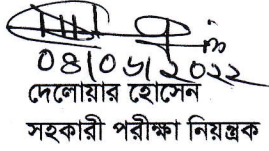 08/06/2022
দেলোয়ার হোসেন
সহকারী পরীক্ষা নিয়ন্ত্রক